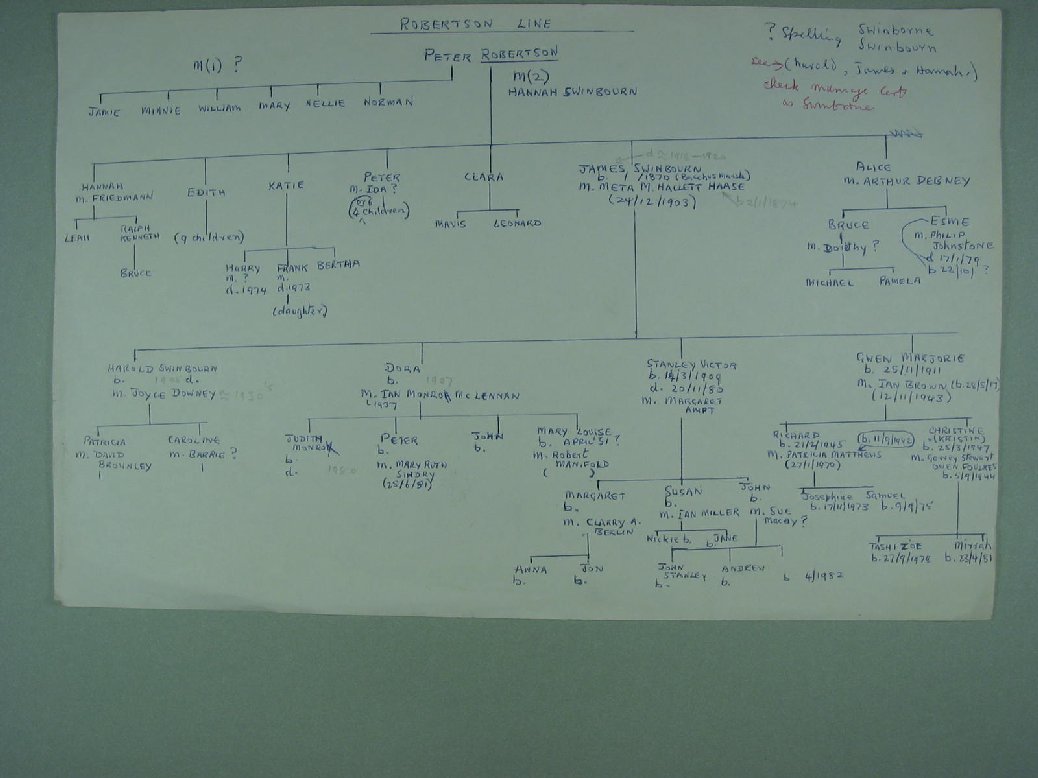 ROBERTSON LINE
? Spelling Swinborne
Swinbourn
(Harold, James + Hannah)
check marriage Cert
as Swinborne
PETER ROBERTSON
M(1) ?
M(2)
HANNAH SWINBOURN
JAMIE MINNIE WILLIAM MARY NELLIE NORMAN
HANNAH
M. FRIEDMANN
LEAH
RALPH
KENNETH
BRUCE
EDITH
(9 children)
KATIE
HARRY
M. ?
d. 1974
FRANK
M.
d. 1973
(daughter)
BERTHA
PETER
M. IDA ?
(4 children)
CLARA
MAVIS LEONARD
JAMES SWINBOURN
b. 1 /1870 (Bacchus Marsh)
M. META M. HALLETT HAASE
(24/12/1903)
b 2/1/1874
ALICE
M. ARTHUR DEBNEY
BRUCE
M. Dorothy ?
MICHAEL PAMELA
ESME
M. PHILIP
JOHNSTONE
d 17/1/79
b 22/10/ ?
HAROLD SWINBOURN
b. d.
M. JOYCE DOWNEY
PATRICIA
M. DAVID
BROWNLEY
CAROLINE
M. BARRIE ?
DORA
b. 1907
M. IAN MONRO McLENNAN
1937
JUDITH
MONRO
b.
d.
PETER
b.
M. MARY RUTH
(25/6/81)
JOHN
b.
MARY LOUISE
b. APRIL '51 ?
M. Robert
MANIFOLD
( )
STANLEY VICTOR
b. /3/1909
d. 20/11/80
M. MARGARET
AMPT
MARGARET
b.
M. CLARRY A.
BERLIN
ANNA
b.
JON
b.
SUSAN
b.
M. IAN MILLER
Nickie b.
JANE
b.
JOHN
b.
M. SUE
Mackay ?
JOHN
STANLEY
b.
ANDREW
b.
b 4/1982
GWEN MARJORIE
b. 25/11/1911
M. IAN BROWN
(12/11/1943)
RICHARD
b. 21/2/1945
M. PATRICIA MATTHEWS
(27/1/1970)
Josephine
b. 17/11/1973
Samuel
b. 9/9/75
CHRISTINE
(KRISTIN)
b. 25/3/1947
OWEN FOULKES
b. 5/9/1944
TASHI ZOE
b. 27/9/1978
Miriah
b. 23/4/81